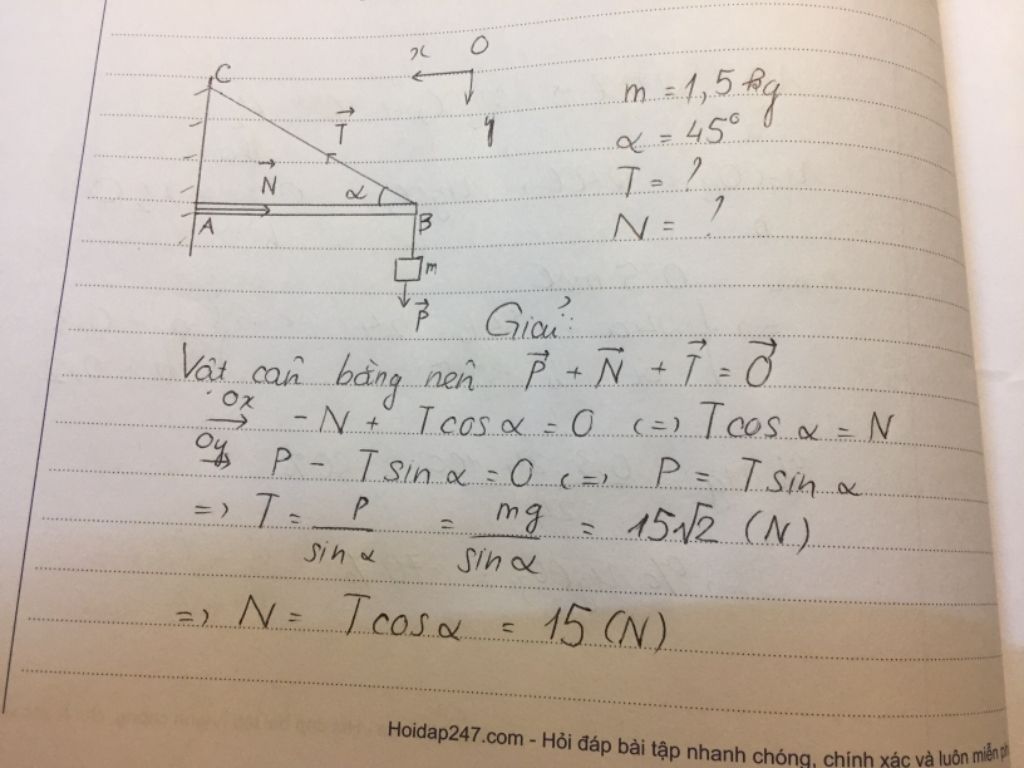 x O
C
y
T
N
α
A
B
m
P
m = 1,5 kg
α = 45°
T = ?
N = ?
Giải:
Vật cân bằng nên P⃗ + N⃗ + T⃗ = O⃗
Ox → - N + T cos α = 0 (=) T cos α = N
Oy → P - T sin α = 0 (=) P = T sin α
=) T = P / sin α = mg / sin α = 15√2 (N)
=) N = T cos α = 15 (N)
Hoidap247.com - Hỏi đáp bài tập nhanh chóng, chính xác và luôn miễn